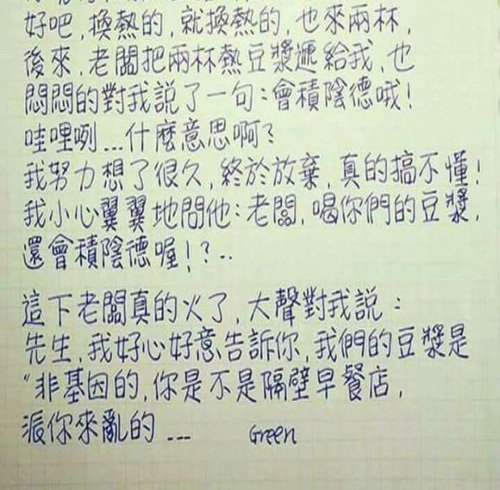 好吧，換熱的，就換熱的，也來兩杯，
後來，老闆把兩杯熱豆漿遞給我，也
悶悶的對我說了一句：會積陰德哦！
哇哩咧...什麼意思啊？
我努力想了很久，終於放棄，真的搞不懂！
我小心翼翼地問他：老闆，喝你們的豆漿，
還會積陰德喔！？..
這下老闆真的火了，大聲對我說：
先生，我好心好意告訴你，我們的豆漿是
"非基因的，你是不是隔壁早餐店，
派你來亂的...
Green